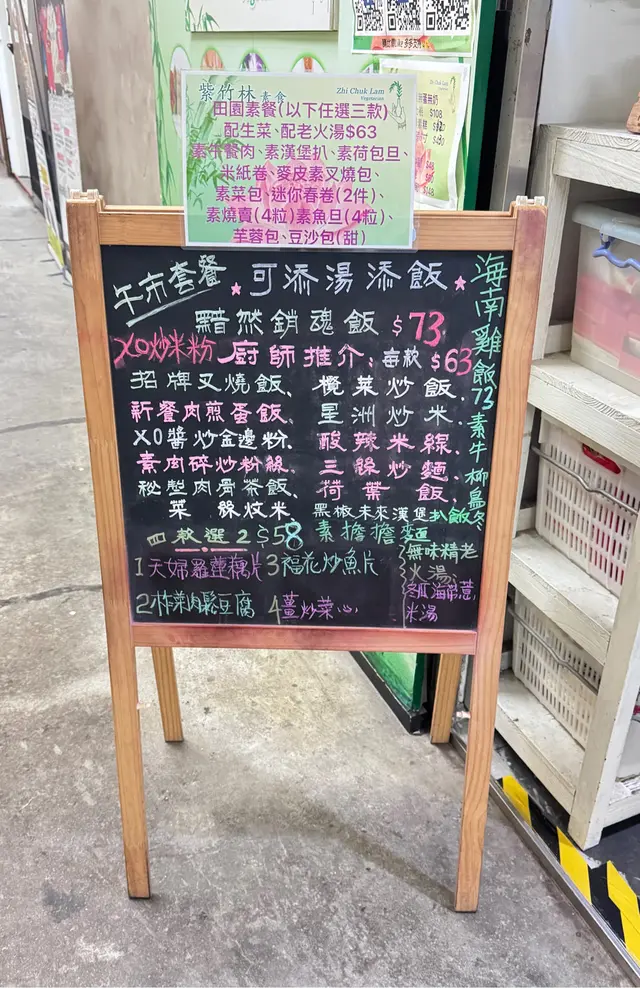 紫竹林素食
Zhi Chuk Lam
Vegetarian
田園素餐(以下任選三款)
配生菜、配老火湯$63
素午餐肉、素漢堡扒、素荷包旦、
米紙卷、麥皮素叉燒包、
素菜包、迷你春卷(2件)、
素燒賣(4粒)素魚旦(4粒)、
芋蓉包、豆沙包(甜)
午市套餐
可添湯添飯
黯然銷魂飯 $73
XO炒米粉
廚師推介:每款 $63
招牌叉燒飯、欖菜炒飯、
新餐肉煎蛋飯、星洲炒米、
XO醬炒金邊粉、酸辣米線、
素肉碎炒粉絲、三絲炒麵、
秘製肉骨茶飯、荷葉飯、
菜絲炆米
黑椒未來漢堡扒飯
四款選2 $58
素擔擔麵
1天婦羅蓮藕片
2炸菜肉鬆豆腐
3福花炒魚片
4薑炒菜心
無味精老
火湯:
冬瓜海帶薏
米湯
海南雞飯73
素牛柳烏冬